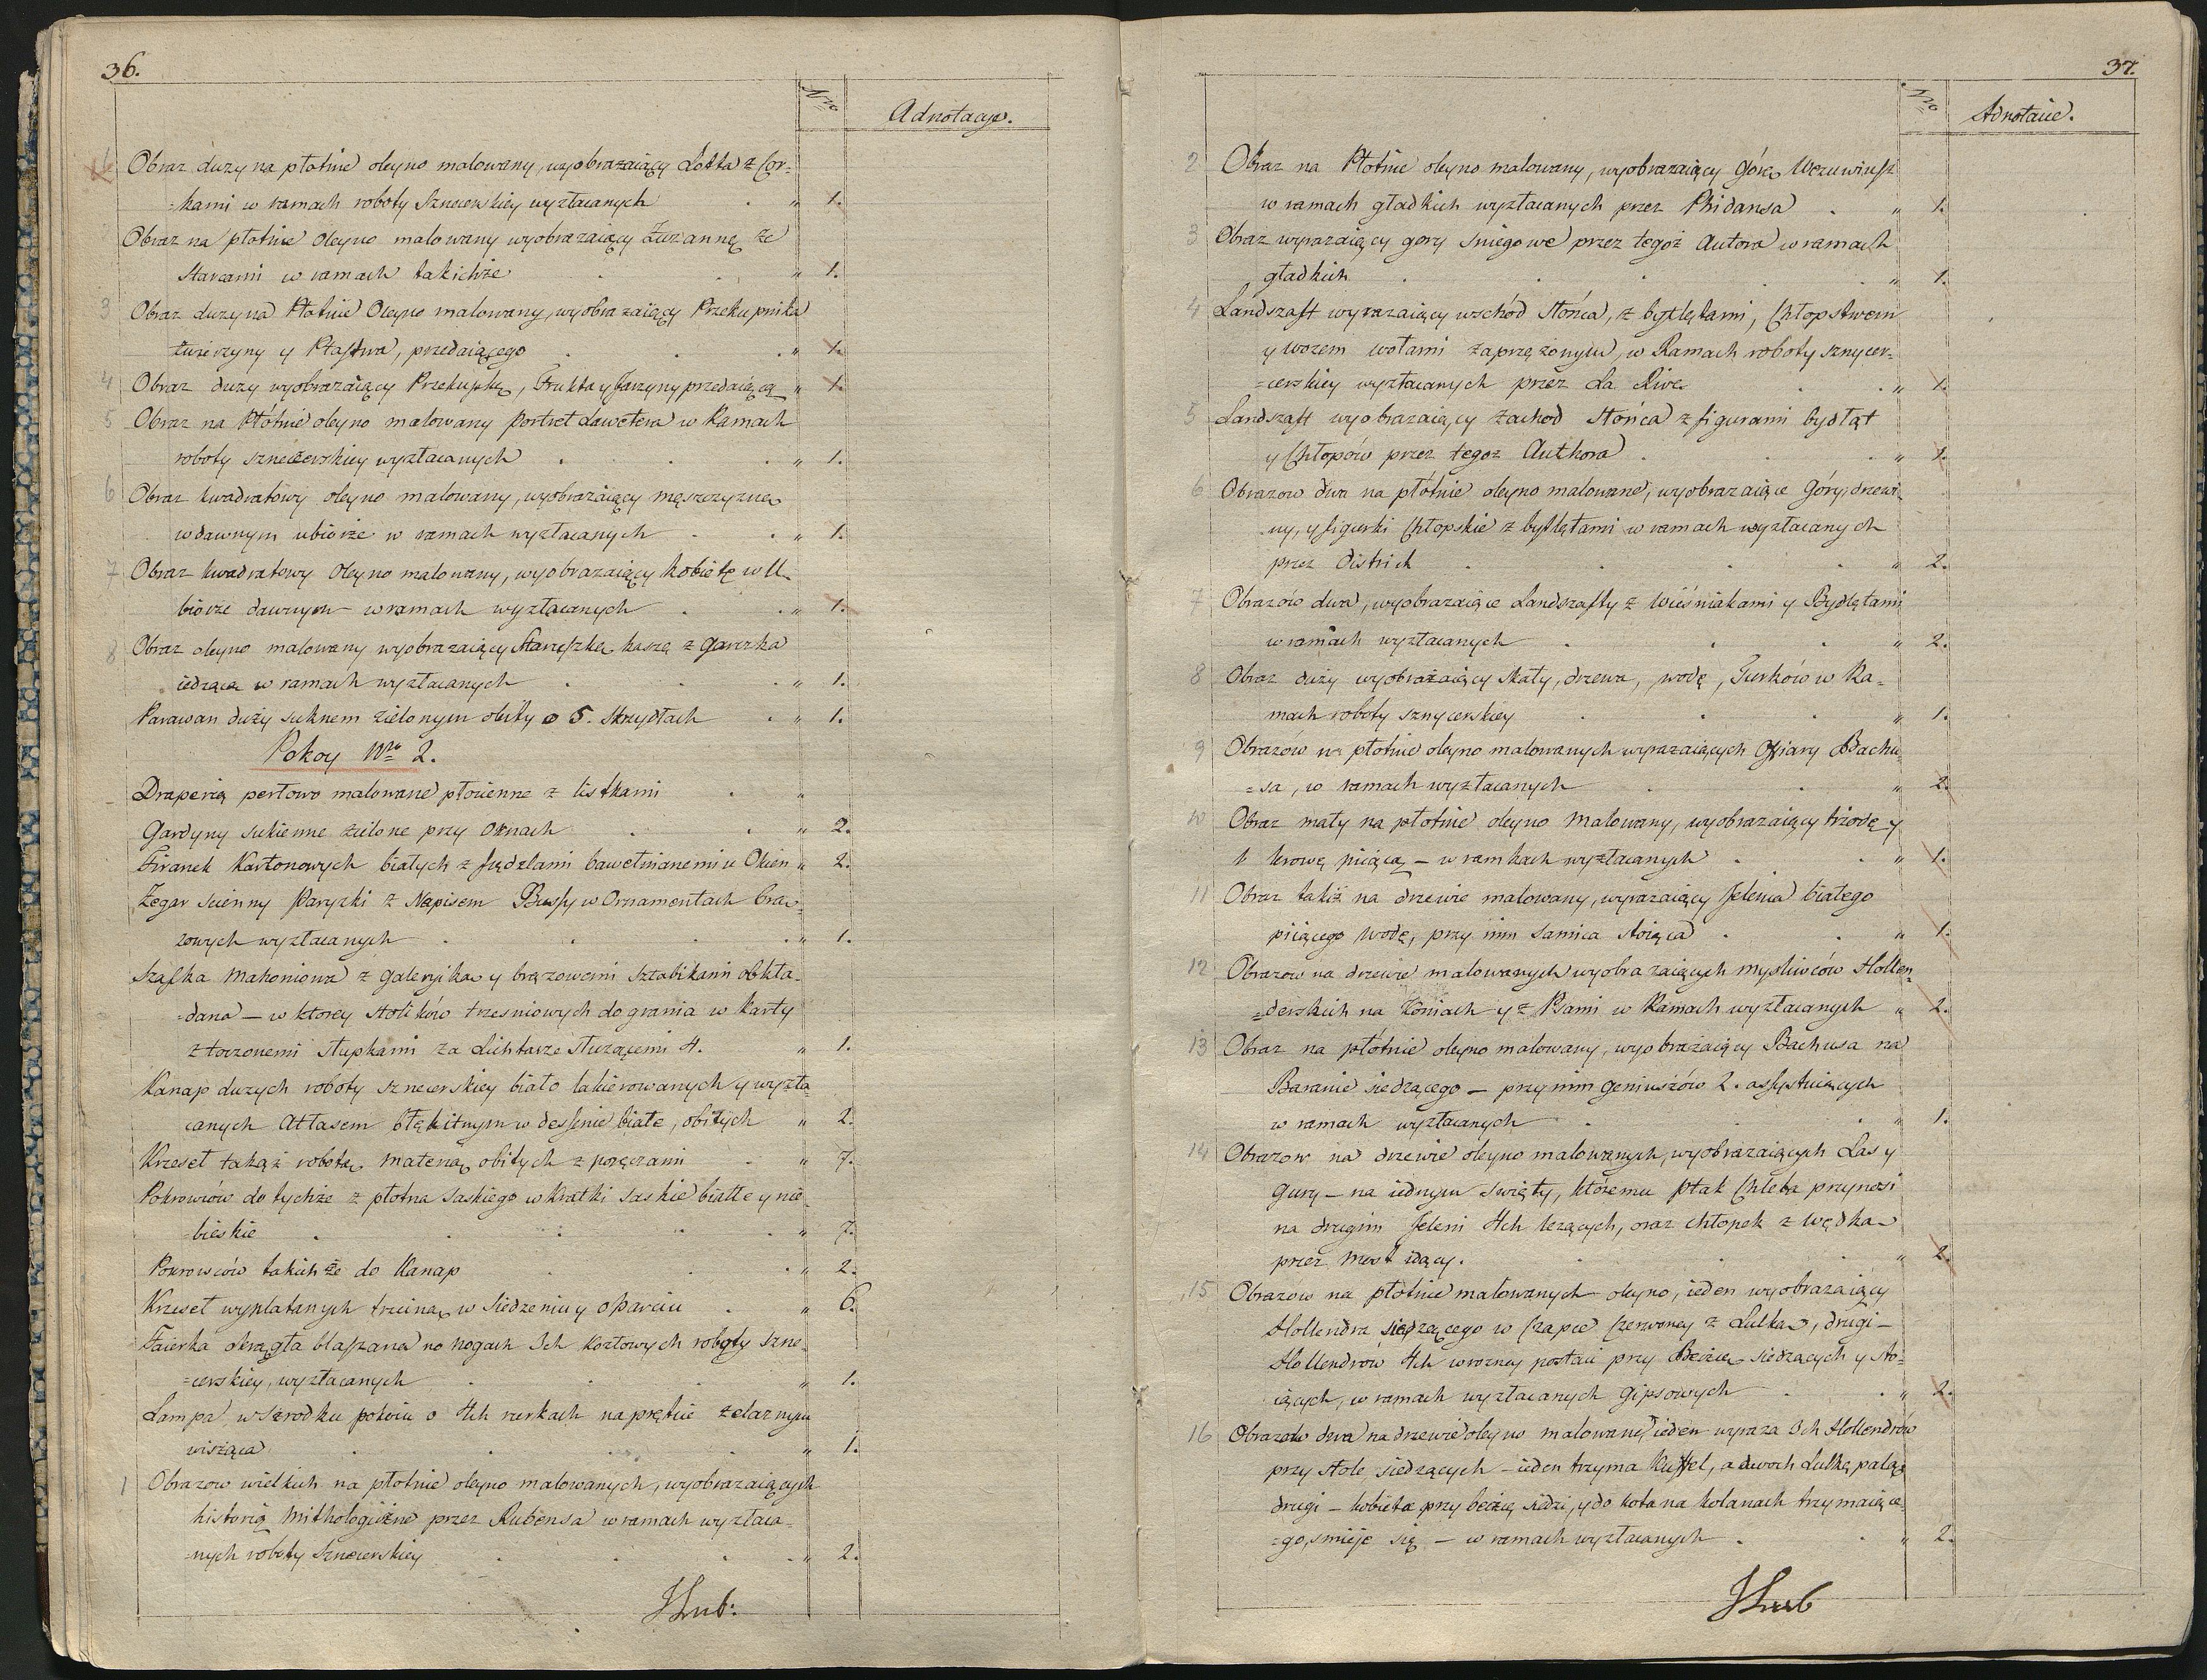 36.
Nro
Adnotacye.
1 Obraz duży na płotnie oleyno malowany, wyobrazaiący Lotta z Cor-
-kami w ramach roboty Sznecerskiey wyzłacanych " 1.
Obraz na płotnie oleyno malowany wyobrazaiący Zuzannę ze
Starcami w ramach takichże " 1.
3 Obraz duży na Płotnie Oleyno malowany, wyobrazaiący Przekupnika
zwierzyny y Ptastwa, przedaiącego " 1.
4 Obraz duży wyobrazaiący Przekupkę, Frukta y Jarzyny przedaiącą " 1.
5 Obraz na Płótnie oleyno malowany Portret Lawetera w Ramach
roboty sznecerskiey wyzłacanych " 1.
6 Obraz kwadratowy oleyno malowany, wyobrażaiący męszczyznę
w dawnym ubiorze w ramach wyzłacanych " 1.
7 Obraz kwadratowy Oleyno malowany, wyobrazaiący kobietę w U-
biorze dawnym – w ramach wyzłacanych " 1.
8 Obraz oleyno malowany wyobrazaiący Staruszkę kaszę z garczka
iedzącą w ramach wyzłacanych " 1.
Parawan duży suknem zielonym obity o 5. Skrzydłach " 1.
Pokoy Nro 2.
Draperią perłowo malowane płocienne z listkami "
Gardyny sukienne zielone przy Oknach " 2.
Firanek Kartonowych białych z frędzlami bawełnianemi u Okien " 2.
Zegar scienny Paryzki z Napisem Bussy w Ornamentach bra-
zowych wyzłacanych " 1.
Szafka Mahoniowa z galeryiką y brązowemi sztabikami obkła-
-dana – w ktorey stolików trzesniowych do grania w karty
z toczonemi słupkami za Lichtarze służącemi 4. " 1.
Kanap duzych roboty sznecerskiey biało lakierowanych y wyzła-
canych Atłasem błękitnym w dessenie białe, obitych " 2.
Krzeseł takąż robotą, materią obitych z poręczami " 7.
Pokrowców do tychże z płotna Saskiego w Kratki saskie białe y nie-
-bieskie " 7.
Pokrowców takichże do Kanap " 2.
Krzeseł wyplatanych trzciną w siedzeniu y oparciu " 6.
Faierka okrągła blaszana na nogach 3ch kozłowych roboty Szne-
-cerskiey, wyzłacanych " 1.
Lampa w szrodku pokoiu o 4ch rurkach na pręcie zelaznym
wisząca " 1.
1 Obrazow wielkich na płotnie oleyno malowanych, wyobrazaiących
historią Mithologiczne przez Rubensa w ramach wyzłaca-
-nych roboty Sznecerskiey " 2.
37.
Nro
Adnotacie.
2 Obraz na Płotnie oleyno malowany, wyobrazaiący Górę Wezuwiusz
w ramach gładkich wyzłacanych przez Phidansa " 1.
3 Obraz wyrazaiący gory sniegowe przez tegoż Autora w ramach
gładkich " 1.
4 Landszaft wyrazaiący wschód Słońca, z bydlętami, Chłopstwem
y wozem wołami zaprzężonym, w Ramach roboty sznycer-
-cerskiey wyzłacanych przez La Rive " 1.
5 Landszaft wyobrazaiący zachod Słońca z figurami bydląt
y Chłopów przez tegoż Authora " 1.
6 Obrazow dwa na płótnie oleyno malowane, wyobrazaiące Góry, drzewi-
ny, y figurki Chłopskie z bydlętami w ramach wyzłacanych
przez Districh " 2.
7 Obrazów dwa, wyobrazaiące Landszafty z Wieśniakami y Bydlętami
w ramach wyzłacanych " 2.
8 Obraz duży wyobrażaiący Skały, drzewa, wodę, Turków w Ra-
mach roboty sznycerskiey " 1.
9 Obrazów na płotnie oleyno malowanych wyrazaiących Ofiary Bachu-
-sa, w ramach wyzłacanych " 2.
10 Obraz mały na płotnie oleyno malowany, wyobrazaiący trzodę y
1 krowę piiącą – w ramkach wyzłacanych " 1.
11 Obraz takiż na drzewie malowany, wyrazaiący Jelenia białego
piiącego wodę, przy nim Samica stoiąca " 1.
12 Obrazow na drzewie malowanych wyobrazaiących mysliwców Hollen-
-derskich na Koniach y z Psami w Ramach wyzłacanych " 2.
13 Obraz na płótnie oleyno malowany, wyobrażaiący Bachusa na
Baranie siedzącego – przy nim geniuszów 2. assystuiących
w ramach wyzłacanych " 1.
14 Obrazow na drzewie oleyno malowanych, wyobrazaiących Las y
Gury – na iednym swięty, któremu ptak Chleba przynosi
na drugim Jeleni 4ch leżących, oraz chłopek z wędką
przez most idący. " 2.
15 Obrazów na płótnie malowanych oleyno, ieden wyobrazaiący
Hollendra siedzącego w Czapce Czerwoney z Lulką, drugi –
Hollendrów 4ch w rozney postaci przy Beczce siedzących y sto-
iących, w ramach wyzłacanych gipsowych " 2.
16 Obrazów dwa na drzewie oleyno malowane, ieden wyraza 3ch Hollendrów
przy stole siedzących – ieden trzyma Kuffel, a dwoch Lulkę palą,
drugi – kobieta przy beczce siedzi, y do kota na kolanach trzymaiące-
-go, smieje się – w ramach wyzłacanych " 2.